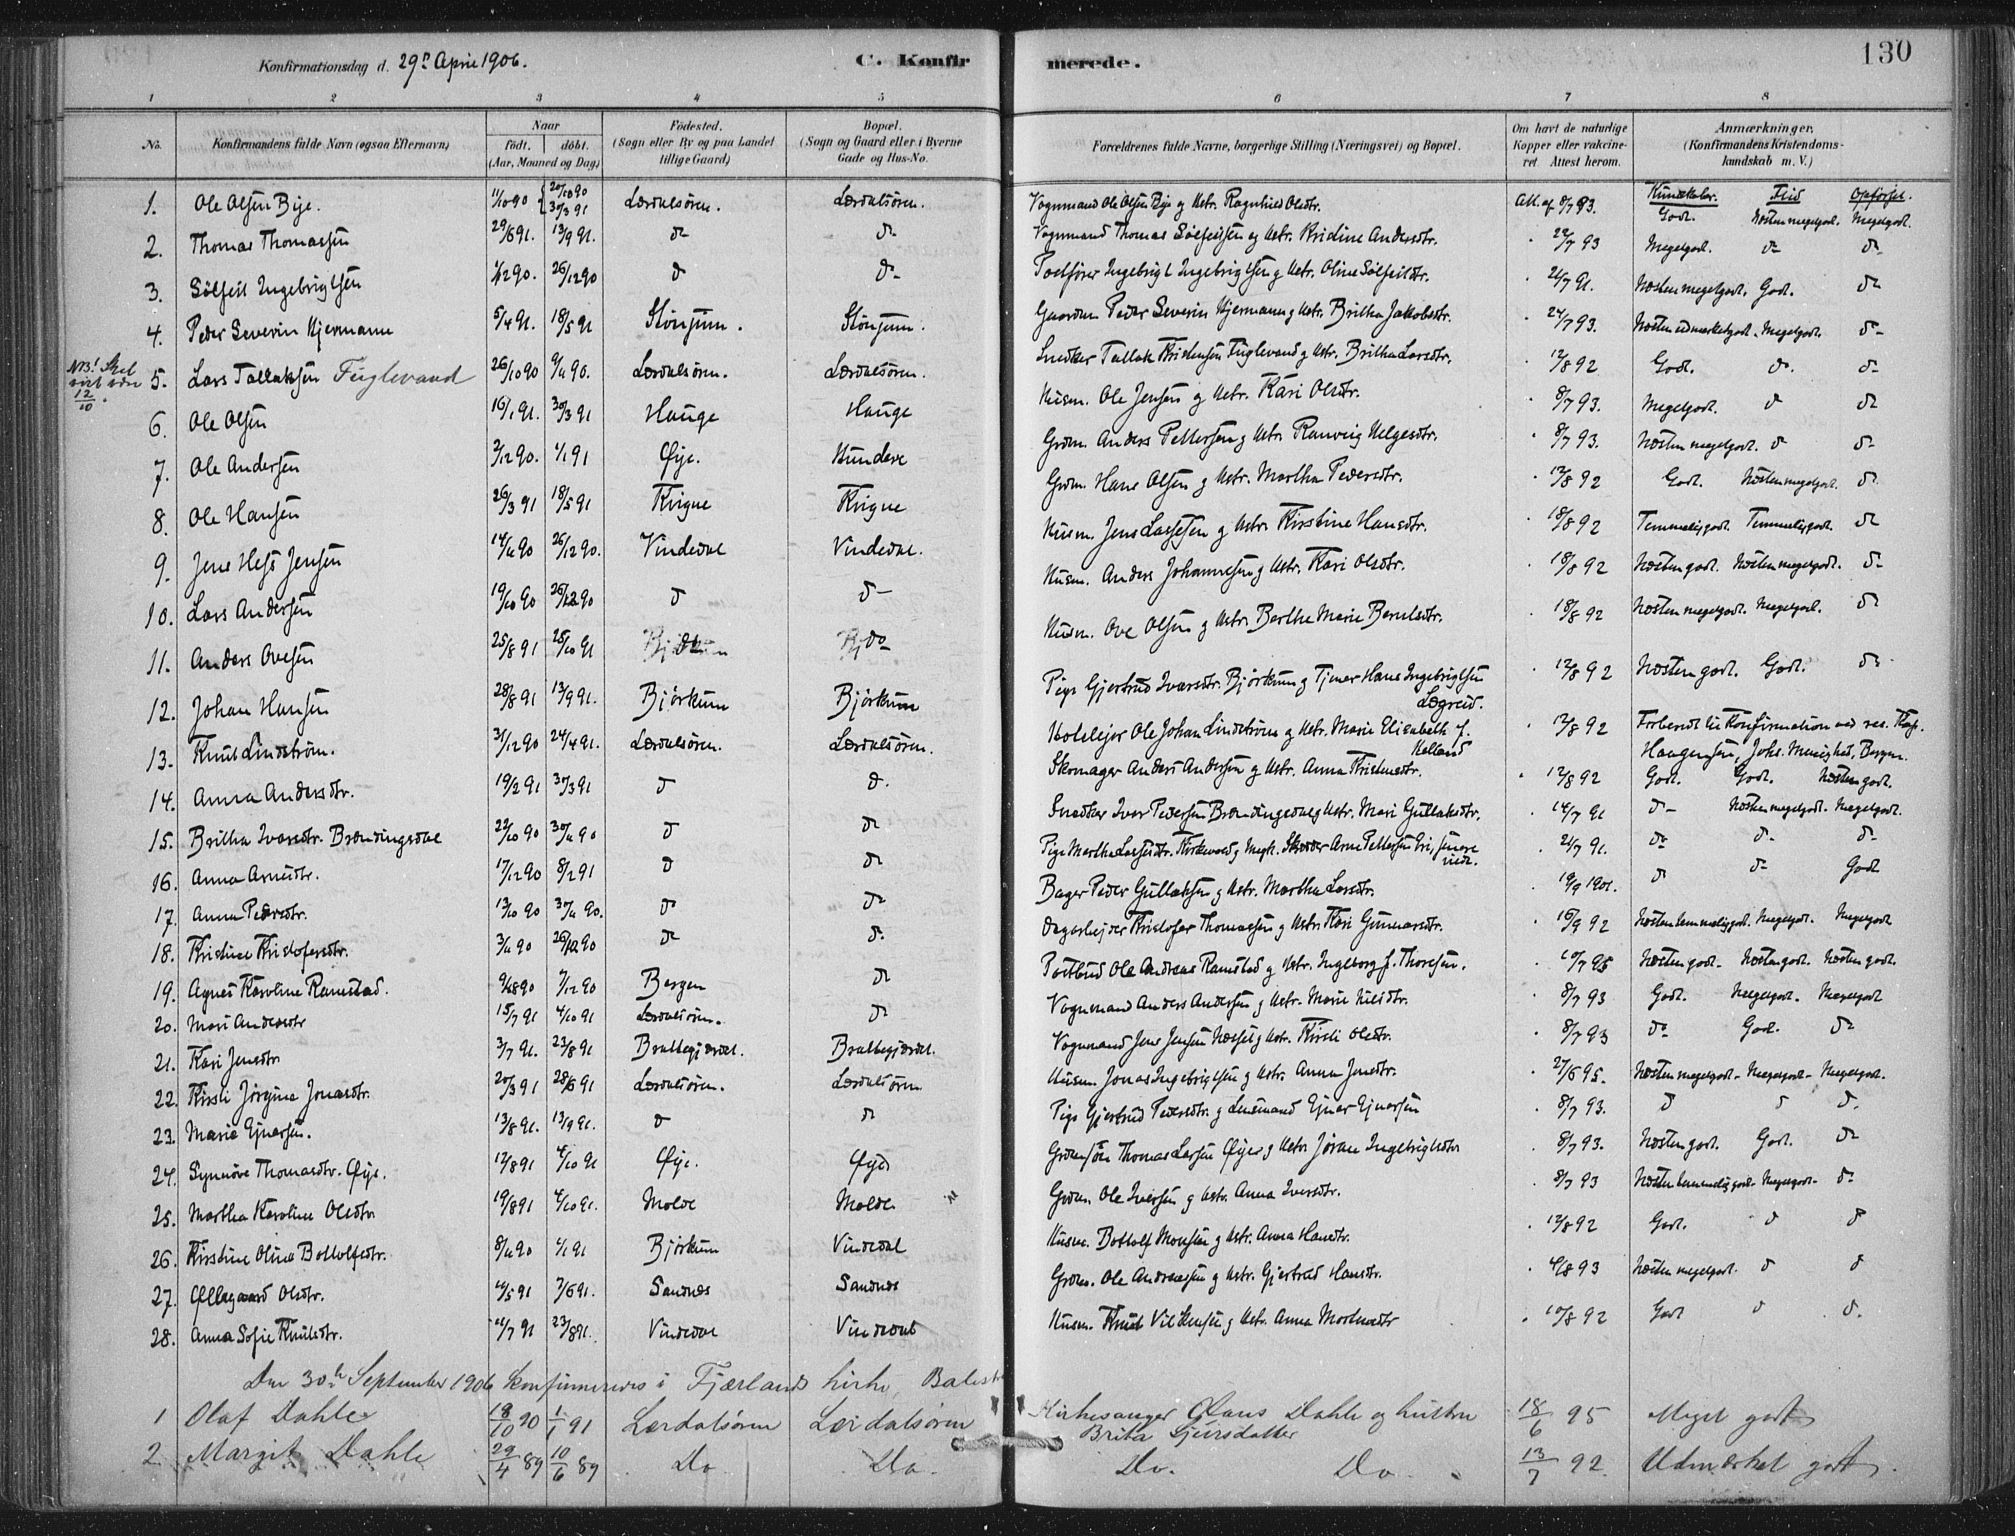 Konfirmationsdag d. 29de April 1906.
C. Konfir
merede.
130
1 2 3 4 5 6 7 8
No. Konfirmandens fulde Navn (ogsaa Efternavn) Naar født. døbt. (Aar, Maaned og Dag) Fødested. (Sogn eller By og paa Landet tillige Gaard) Bopæl. (Sogn og Gaard eller i Byerne Gade og Hus-No. Forældrenes fulde Navne, borgerlige Stilling (Næringsvei) og Bopæl. Om havt de naturlige Kopper eller vakcineret. Attest herom. Anmærkninger. (Konfirmandens Kristendomskundskab m. V.)
Kundskaber. Flid Opførsel.
1. Ole Olsen Bije. 11/10 90 20/10 90 30/3 91 Lærdalsøren. Lærdalsøren. Vognmand Ole Olsen Bije og Hstr. Ragnhild Olsdtr. Att. af 8/7 93. Godt. Næsten megetgodt. Megetgodt.
2. Thomas Thomassen 29/6 91. 13/9 91. do do Vognmand Thomas Sølfestsen og Hstr. Kridine Andersdtr. 22/7 93 Megetgodt. do do
3. Sølfest Ingebrigtsen 1/12 90. 26/12 90 do do Postfører Ingebrigt Ingebrigtsen og Hstr. Oline Sølfestdtr. 24/7 91. Næsten megetgodt. Godt. do
4. Peder Severin Hjermann 5/4 91. 18/5 91 Stønjum. Stønjum. Gaardm. Peder Severin Hjermann og Hstr. Britha Jakobsdtr. 24/7 93. Næsten udmærketgodt. Megetgodt. do
NB! Skal
12/10
5. Lars Tallaksen Fuglevand 26/10 90 9/11 90. Lærdalsøren. Lærdalsøren. Snedker Tallak Kristensen Fuglevand og Hstr. Britha Larsdtr. 12/8 92 Godt. do. do
6. Ole Olsen 16/1 91. 30/3 91 Hauge Hauge Husm. Ole Jensen og Hstr. Kari Olsdtr. 8/7 93. Megetgodt. do do
7. Ole Andersen 3/12 90. 1/1 91 Øije. Hundere Grdm. Anders Pettersen og Hstr. Ranveig Helgesdtr. 8/7 93. Næsten megetgodt. do do
8. Ole Hansen 26/3 91 18/5 91 Kvigne Kvigne Grdm. Hans Olsen og Hstr. Martha Pedersdtr. 12/8 92 Godt. Næsten megetgodt. do
9. Jens Hess Jensen 14/11 90 26/12 90. Vindedal Vindedal. Husm. Jens Lassesen og Hstr. Kirstine Hansdtr. 18/8 92 Temmeliggodt. Temmeliggodt. do
10. Lars Andersen 19/10 90 26/12 90 do do Husm. Anders Johannesen og Hstr. Kari Olsdtr. 18/8 92 Næsten godt. Næsten megetgodt. do
11. Anders Ovesen 25/8 91 25/10 91 do do Husm. Ove Olsen og Hstr. Barthe Marie Berntsdtr. 18/8 92 Næsten megetgodt. Megetgodt. do
12. Johan Hansen 28/8 91 13/9 91. Bjørkum Bjørkum Pige Gjertrud Iversdtr. Bjørkum og Tjener Hans Ingebrigtsen Lægreid. 12/8 92 Næsten godt. Godt. do
13. Knut Lindstrøm. 31/12 90 24/4 91. Lærdalsøren. Lærdalsøren. Hotelejer Ole Johan Lindstrøm og Hstr. Marie Elisabeth f. Helland 12/8 92 Forberedt til Konfirmation ved res. Kap. Haagensen, Johs. Menighed, Bergen.
14. Anna Andersdtr. 19/2 91 30/3 91 do do. Skomager Anders Andersen og Hstr. Anna Kristensdtr. 12/8 92 Godt. Godt. Næsten godt.
15. Britha Iversdtr. Brændingsdal 22/10 90 30/11 90 do do Snedker Iver Pedersen Brændingsdal og Hstr. Mari Gullaksdtr. 14/7 91 do Næsten megetgodt. Megetgodt.
16. Anna Arnesdtr. 17/12 90 8/2 91 do do Pige Martha Lassesdtr. Kirkevold og Arne Pettersen Eri, 24/7 91. do do do
17. Anna Pedersdtr. 13/10 90 30/11 90. do do Bager Peder Gullaksen og Hstr. Martha Larsdtr. 19/9 1901. do do Godt
18. Kristine Kristofersdtr. 3/11 90 26/12 90 do do. Dagarbejder Kristofer Thomassen og Hstr. Kari Gunnarsdtr. 15/9 92 Næsten temmeliggodt. Megetgodt. Megetgodt
19. Agnes Karoline Ramstad. 9/8 90 7/12 90 Bergen do Postbud Ole Andreas Ramstad og Hstr. Ingeborg f. Thoresen. 10/7 95 Næsten godt. Næsten godt. Næsten godt.
20. Mari Andersdtr 15/7 91 4/10 91 Lærdalsøren. do Vognmand Anders Andersen og Hstr. Marie Nilsdtr. 8/7 93 Godt. Megetgodt. Megetgodt
21. Kari Jensdtr 3/7 91. 23/8 91 Brattegjerdet. Brattegjerdet. Vognmand Jens Jensen Næsset og Hstr. Kirsti Olsdtr. 8/7 93 do Godt. do
22. Kirsti Jørgine Jonasdtr. 20/3 91 28/6 91 Lærdalsøren. Lærdalsøren Husm. Jonas Ingebrigtsen og Hstr. Anna Jensdtr. 27/6 95. Næsten megetgodt. Megetgodt. Megetgodt.
23. Marie Ejnarsen. 13/8 91. 13/9 91. do do Pige Gjertrud Pedersdtr. og Lensmand Ejnar Ejnarsen 8/7 93. do do do.
24. Synnøve Thomasdtr. Øije. 12/8 91 4/10 91 Øije. Øije Thomas Larsen Øije og Hstr. Jøran Ingebrigtsdtr 8/7 93. Næsten godt. Godt. do
25. Martha Karoline Olsdtr 19/8 91 4/10 91. Molde Molde Grdm. Ole Iversen og Hstr. Anna Iversdtr. 8/7 93 Næsten temmeliggodt. Megetgodt. do
26. Kirstine Oline Bottolfsdtr. 8/11 90 4/1 91 Bjørkum Vindedal Husm. Bottolf Monsen og Hstr. Anna Hansdtr. 12/8 92 Godt. do do
27. Øllegaard Olsdtr. 11/5 91 7/6 91. Sandnes Sandnes Grdm. Ole Andreassen og Hstr. Gjertrud Hansdtr. 4/8 93 Næsten megetgodt. do do
28. Anna Sofie Knutsdtr. 11/7 91 23/8 91. Vindedal Vindedal Husm. Knut Vilhemsen og Hstr. Anna Mortensdtr 10/8 92 Godt do do.
Den 30te September 1906 konfirmeredes i Fjærlands kirke, Balest
1 Olaf Dahle 18/10 90 1/1 91 Lærdalsøren Lærdalsøren Kirkesanger Claus Dahle og hustru Brita Geirsdatter 18/6 95 Meget godt
2. Margit Dahle 29/4 89 10/6 89 Do Do. Do. Do. 13/7 92. Udmærket godt.